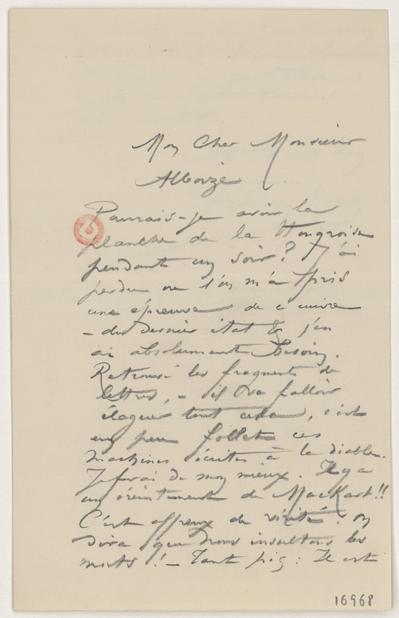 Mon Cher Monsieur
Alboize
Pourrais-je avoir la
planche de la Hongroise
pendant un soir? J'ai
perdu ou l'on m'a pris
une épreuve de ce cuivre
– du dernier état & j'en
ai absolument besoin.
Retrouvé les fragments de
lettres, – il va falloir
élaguer tout cela, c'est
un peu follet ces
machines écrites à la diable.
Je ferai de mon mieux. Il y a
un éreintement de Mackart!!
C'est affreux de vérité: on
dira que nous insultons les
morts! – Tant pis: Il est
16968